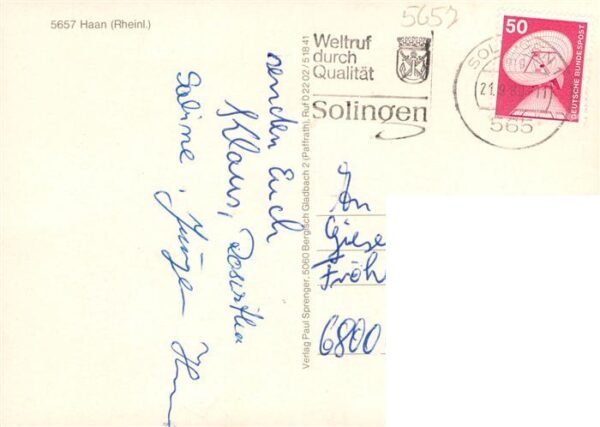 5657 Haan (Rheinl.)
5657
Weltruf
durch
Qualität
Solingen
50
DEUTSCHE BUNDESPOST
565
senden Euch
Klaus, Roswitha
Sabine, Jürgen
Verlag Paul Sprenger, 5060 Bergisch Gladbach 2 (Paffrath), Ruf 0 22 02 / 5 18 41
An
Giese
Fröh
6800